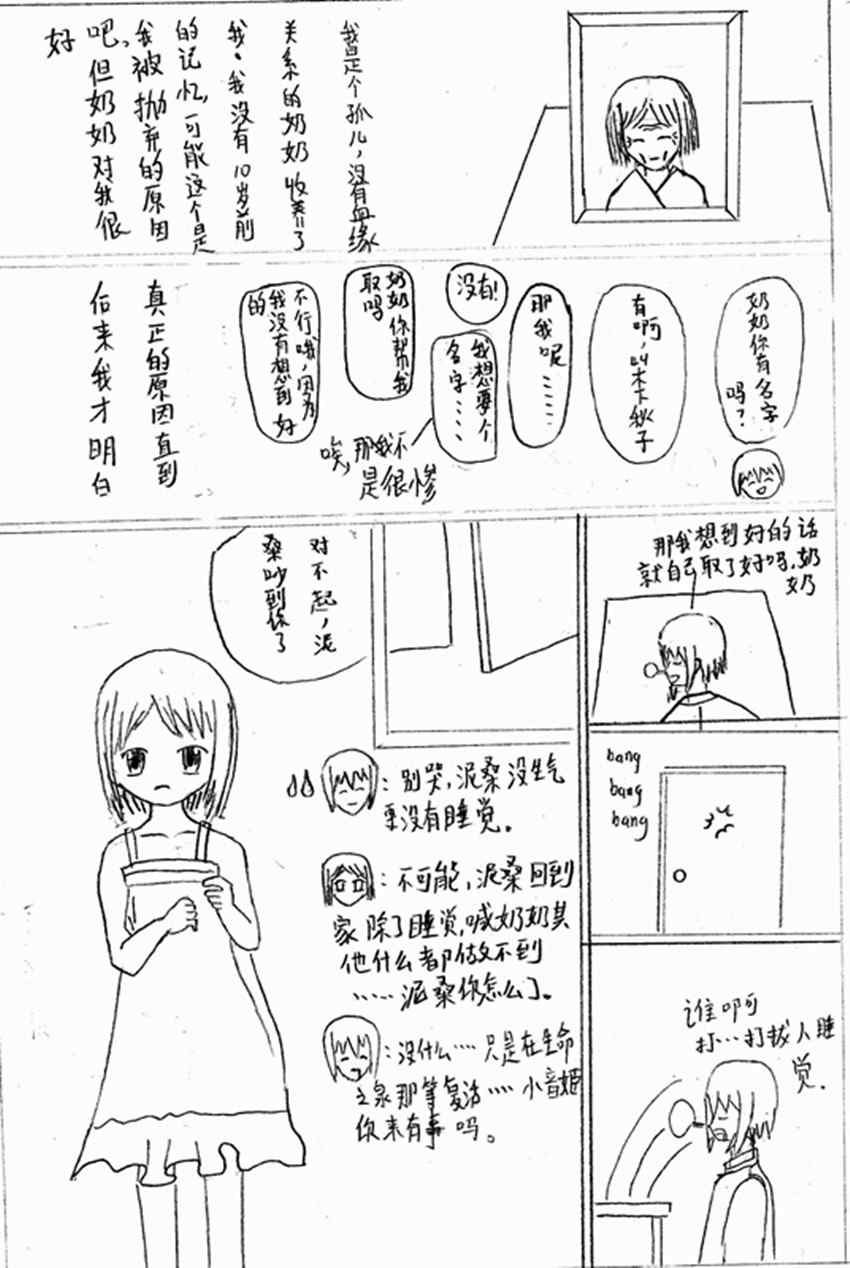 我是个孤儿，没有血缘
关系的奶奶收养了
我。我没有10岁前
的记忆，可能这个是
我被抛弃的原因
吧，但奶奶对我很
好
奶奶你有名字
吗？
有啊，叫木下秋子
那我呢……
没有！
我想要个
名字……
唉，那我不
是很惨
奶奶你帮我
取吗
不行哦，因为
我没有想到好
的
真正的原因直到
后来我才明白
那我想到好的话
就自己取了好吗，奶
奶
bang
bang
bang
谁啊
打…打扰人睡
觉．
对不起，泥
桑吵到你了
：别哭，泥桑没生气
更没有睡觉。
：不可能，泥桑回到
家除了睡觉，喊奶奶其
他什么都做不到
……泥桑你怎么了。
：没什么……只是在生命
之泉那等复活……小音姬
你来有事吗。